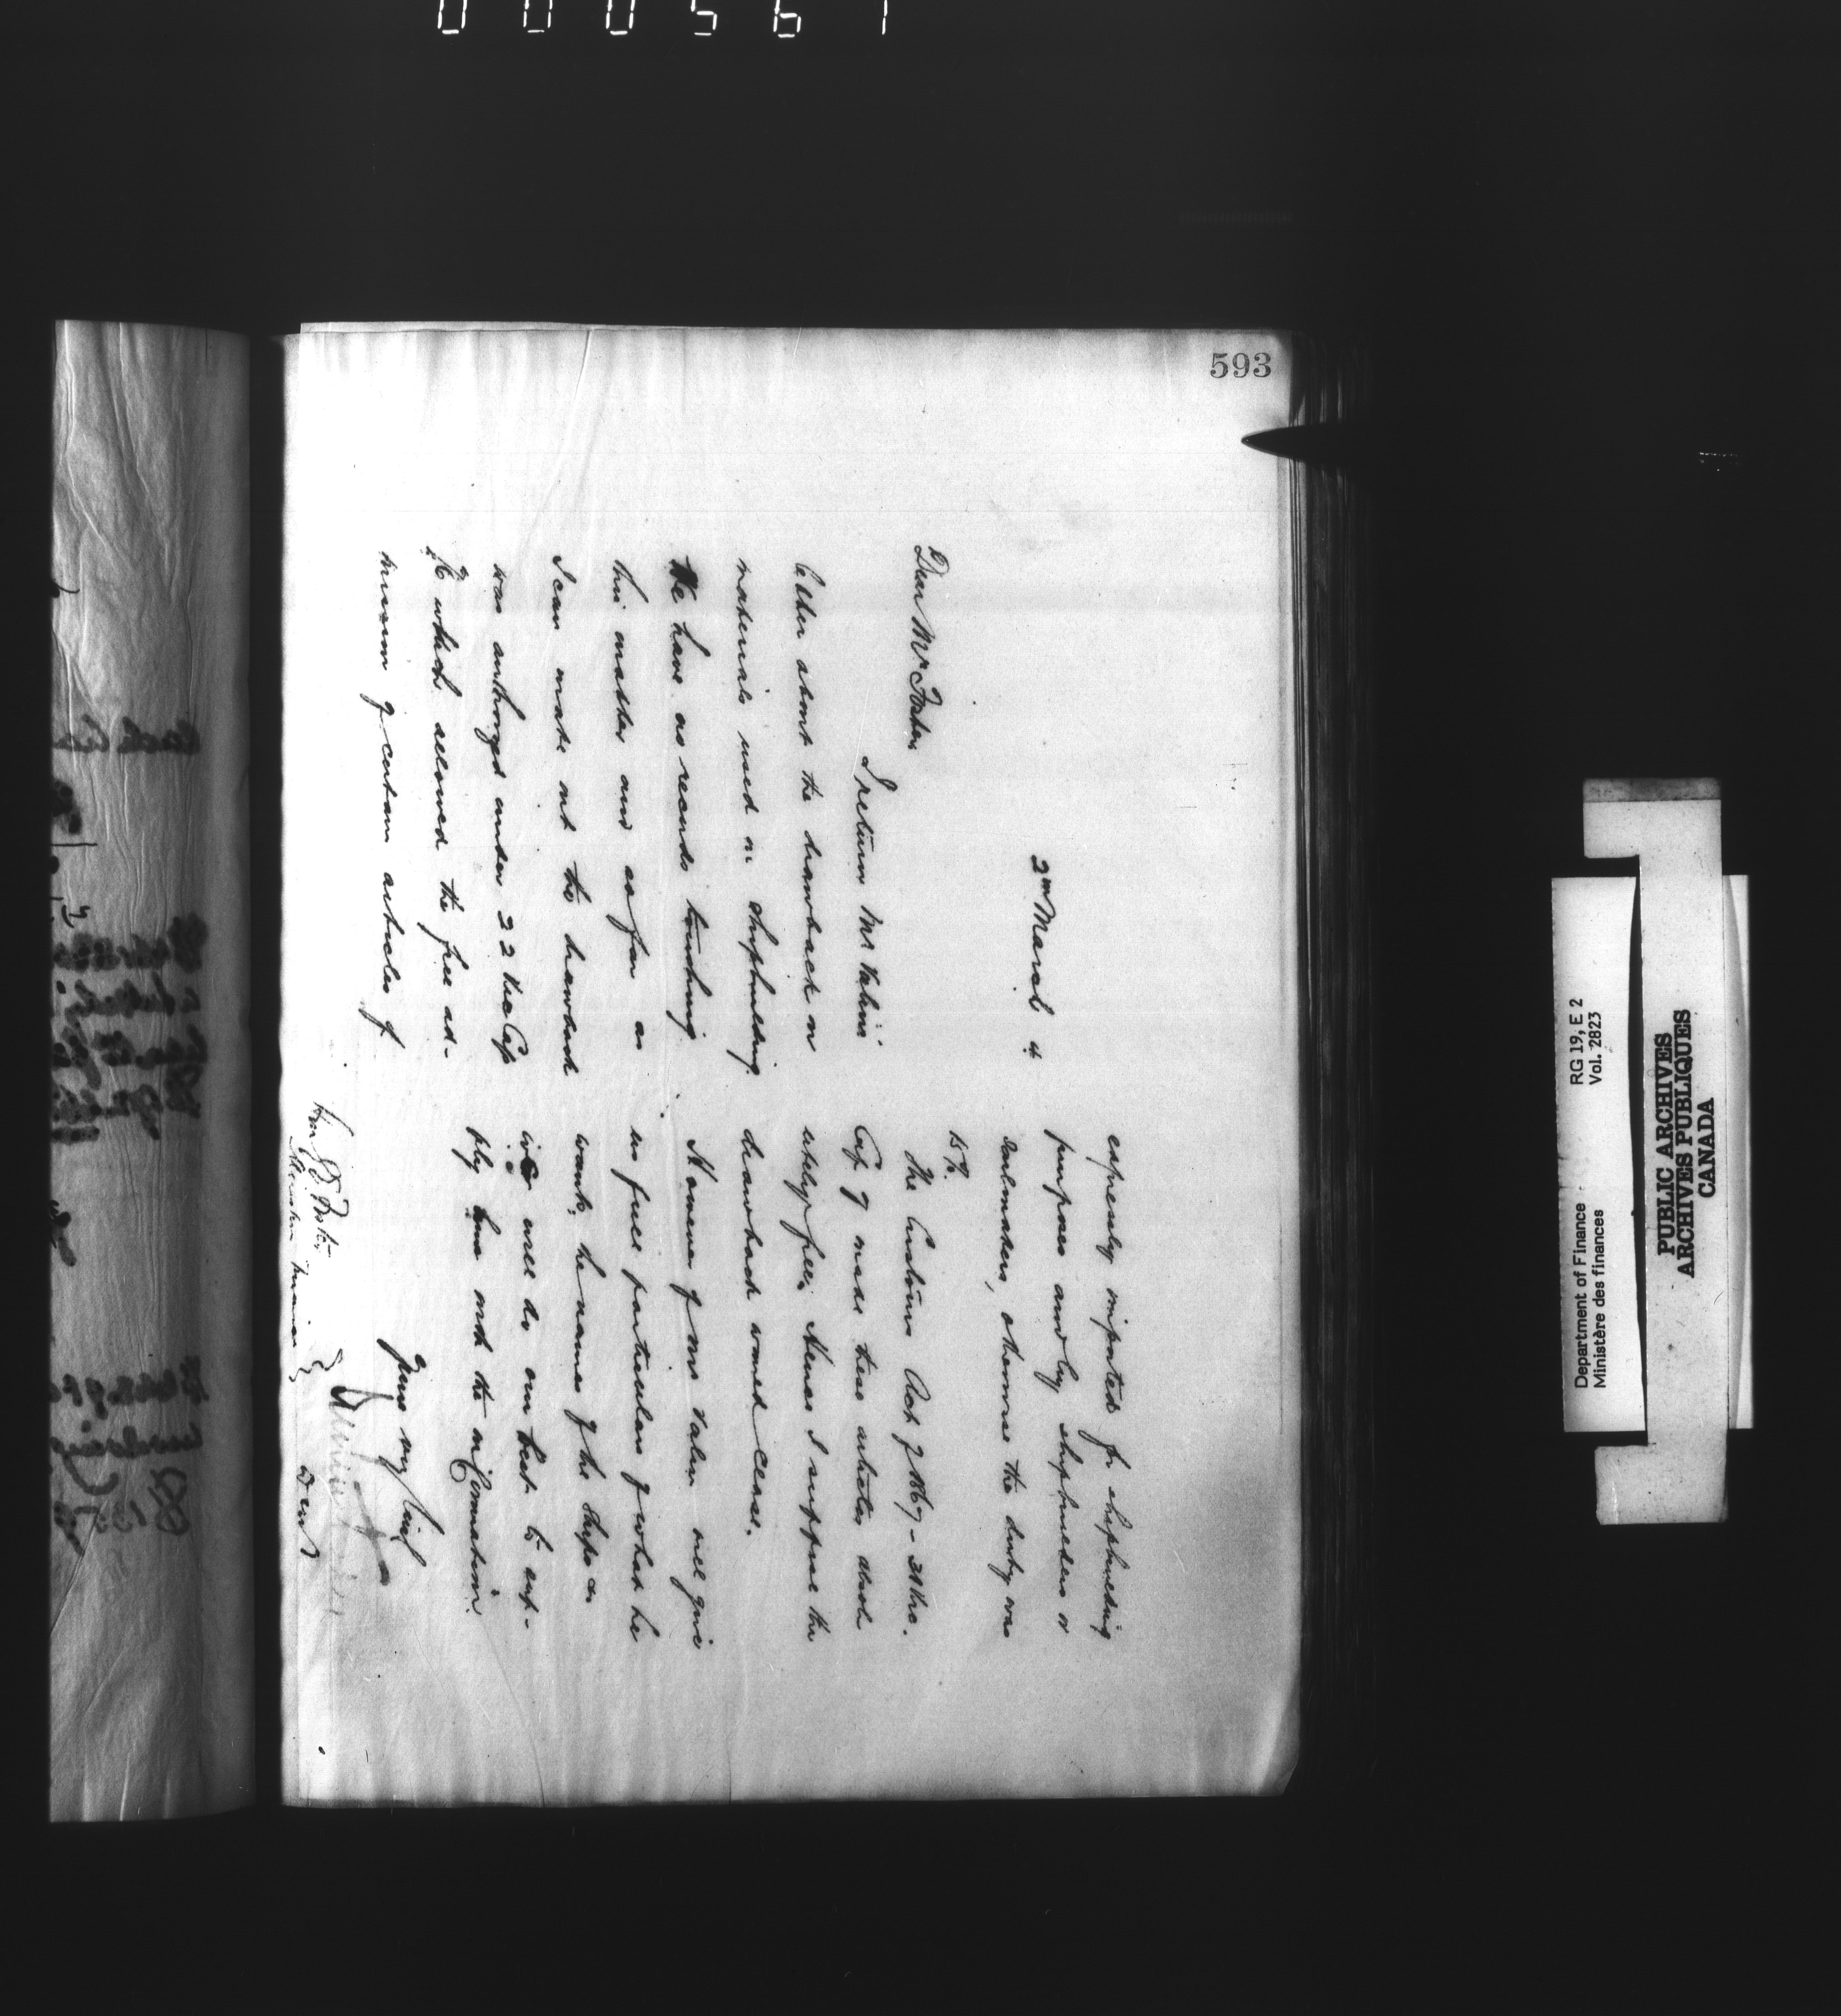 000567
593
2nd March 4.
Dear Mr Foster
I return Mr Valin's
letter about the drawback on
materials used in shipbuilding.
We have no records touching
this matter and as far as
I can make out the drawback
was authorized under 22 Vic Cap
which allowed the free ad-
mission of certain articles if
expressly imported for shipbuilding
purposes and by shipbuilders or
Sailmakers, otherwise the duty was
15%.
The Customs Act of 1867 - 31 Vic.
Cap 7 made these articles absol
utely free. Hence I suppose the
drawback would cease.
However if Mr Valin will give
us full particulars of what he
wants, the names of the ships &c
we will do our best to sup-
ply him with the information.
Yours very truly
Hon G E Foster
Minister Marine &c
RG 19, E 2
Vol. 2823
Department of Finance
Ministère des finances
PUBLIC ARCHIVES
ARCHIVES PUBLIQUES
CANADA